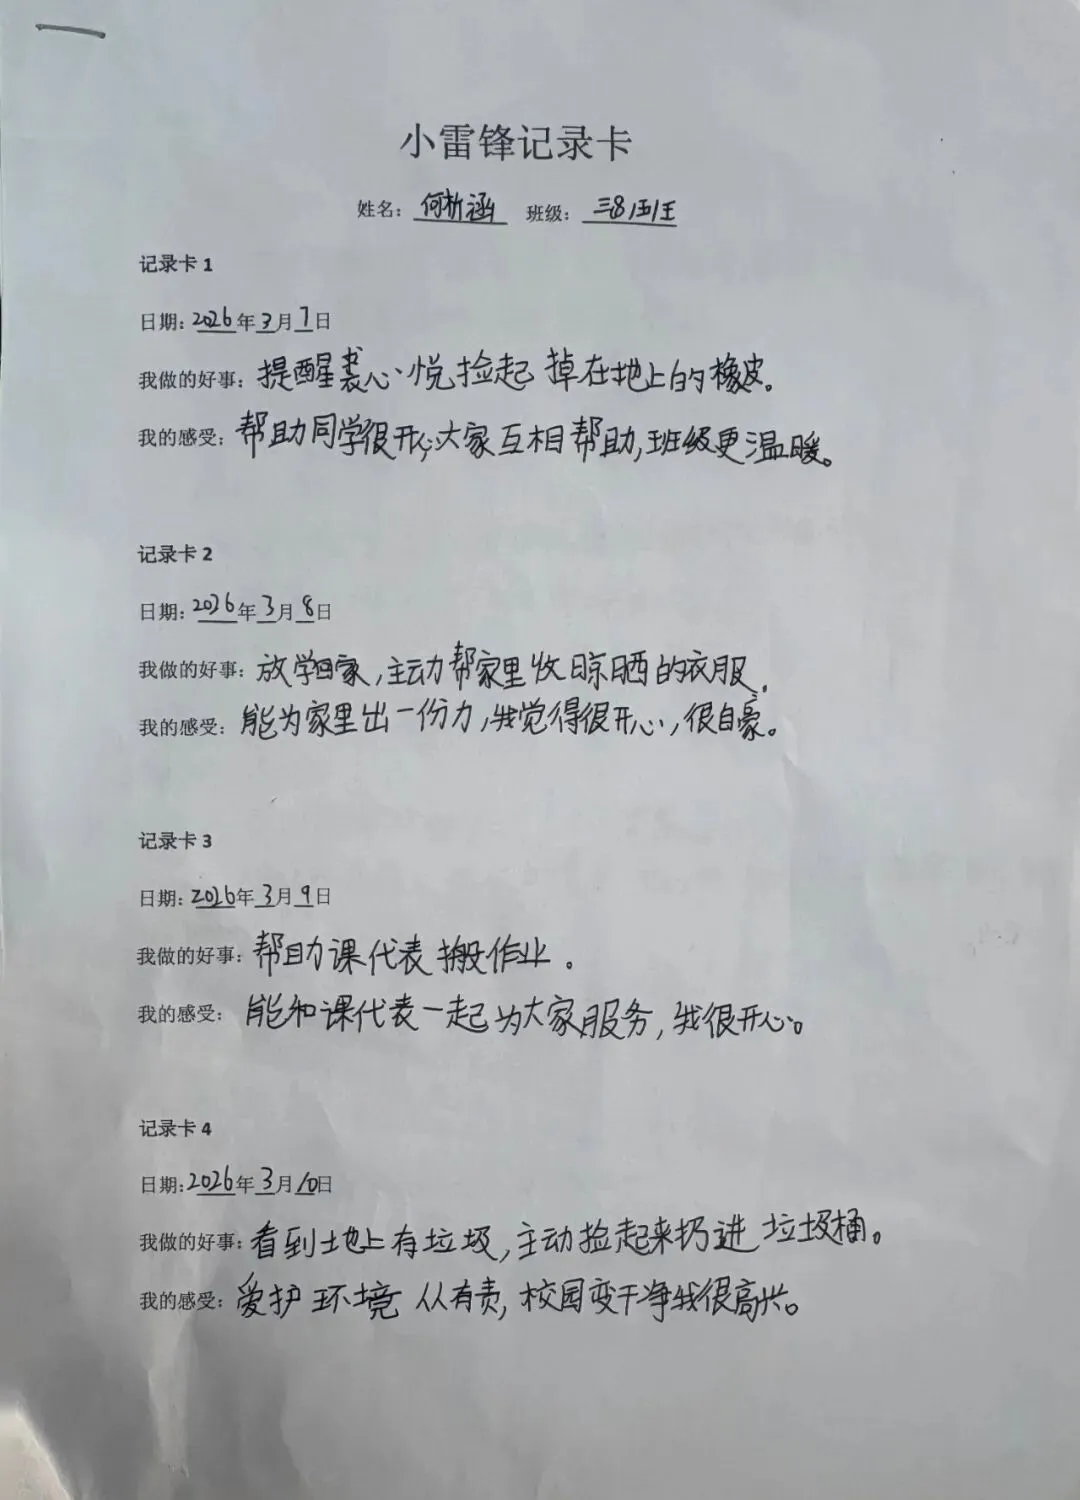 小雷锋记录卡
姓名：何析涵 班级：三8班
记录卡 1
日期：2026年3月7日
我做的好事：提醒裘心悦捡起掉在地上的橡皮。
我的感受：帮助同学很开心,大家互相帮助,班级更温暖。
记录卡 2
日期：2026年3月8日
我做的好事：放学回家,主动帮家里收晾晒的衣服.
我的感受：能为家里出一份力,我觉得很开心,很自豪。
记录卡 3
日期：2026年3月9日
我做的好事：帮助课代表搬作业。
我的感受：能和课代表一起为大家服务,我很开心。
记录卡 4
日期：2026年3月10日
我做的好事：看到地上有垃圾,主动捡起来扔进垃圾桶。
我的感受：爱护环境从有责,校园变干净我很高兴。